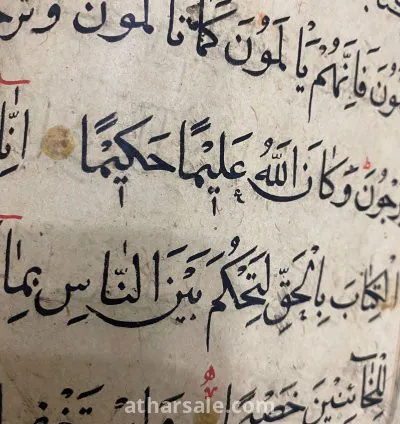 يَأْلَمُونَ كَمَا تَأْلَمُونَ وَتَرْجُ
ونَ فَإِنَّهُمْ يَأْلَمُونَ كَمَا
رْجُونَ وَكَانَ اللَّهُ عَلِيمًا حَكِيمًا إِنَّا
الْكِتَابَ بِالْحَقِّ لِتَحْكُمَ بَيْنَ النَّاسِ بِمَا
لِلْخَائِنِينَ خَصِيمًا وَاسْتَغْفِرِ
atharsale.com